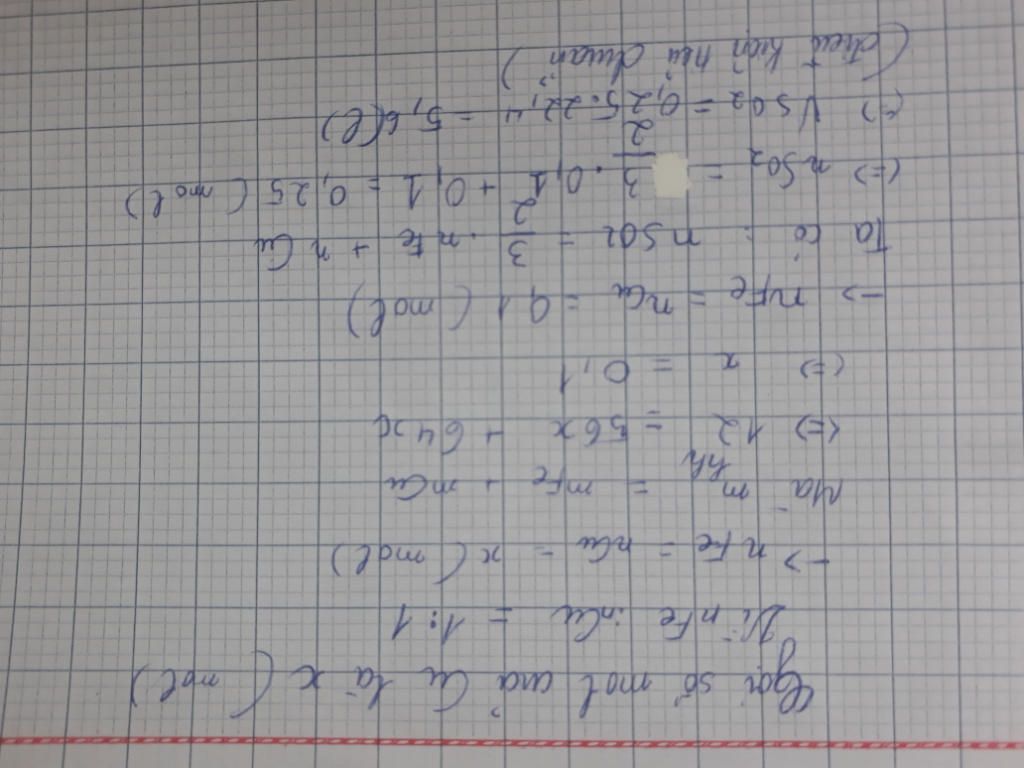 Gọi số mol của Cu là x (mol)
Vì nFe : nCu = 1:1
-> nFe = nCu = x (mol)
Mà mhh = mFe + mCu
<=> 12 = 56x + 64x
<=> x = 0,1
-> nFe = nCu = 0,1 (mol)
Ta có : nSO2 = 3/2 . nFe + nCu
<=> nSO2 = 3/2 . 0,1 + 0,1 = 0,25 (mol)
<=> VSO2 = 0,25.22,4 = 5,6 (l)
(điều kiện tiêu chuẩn)